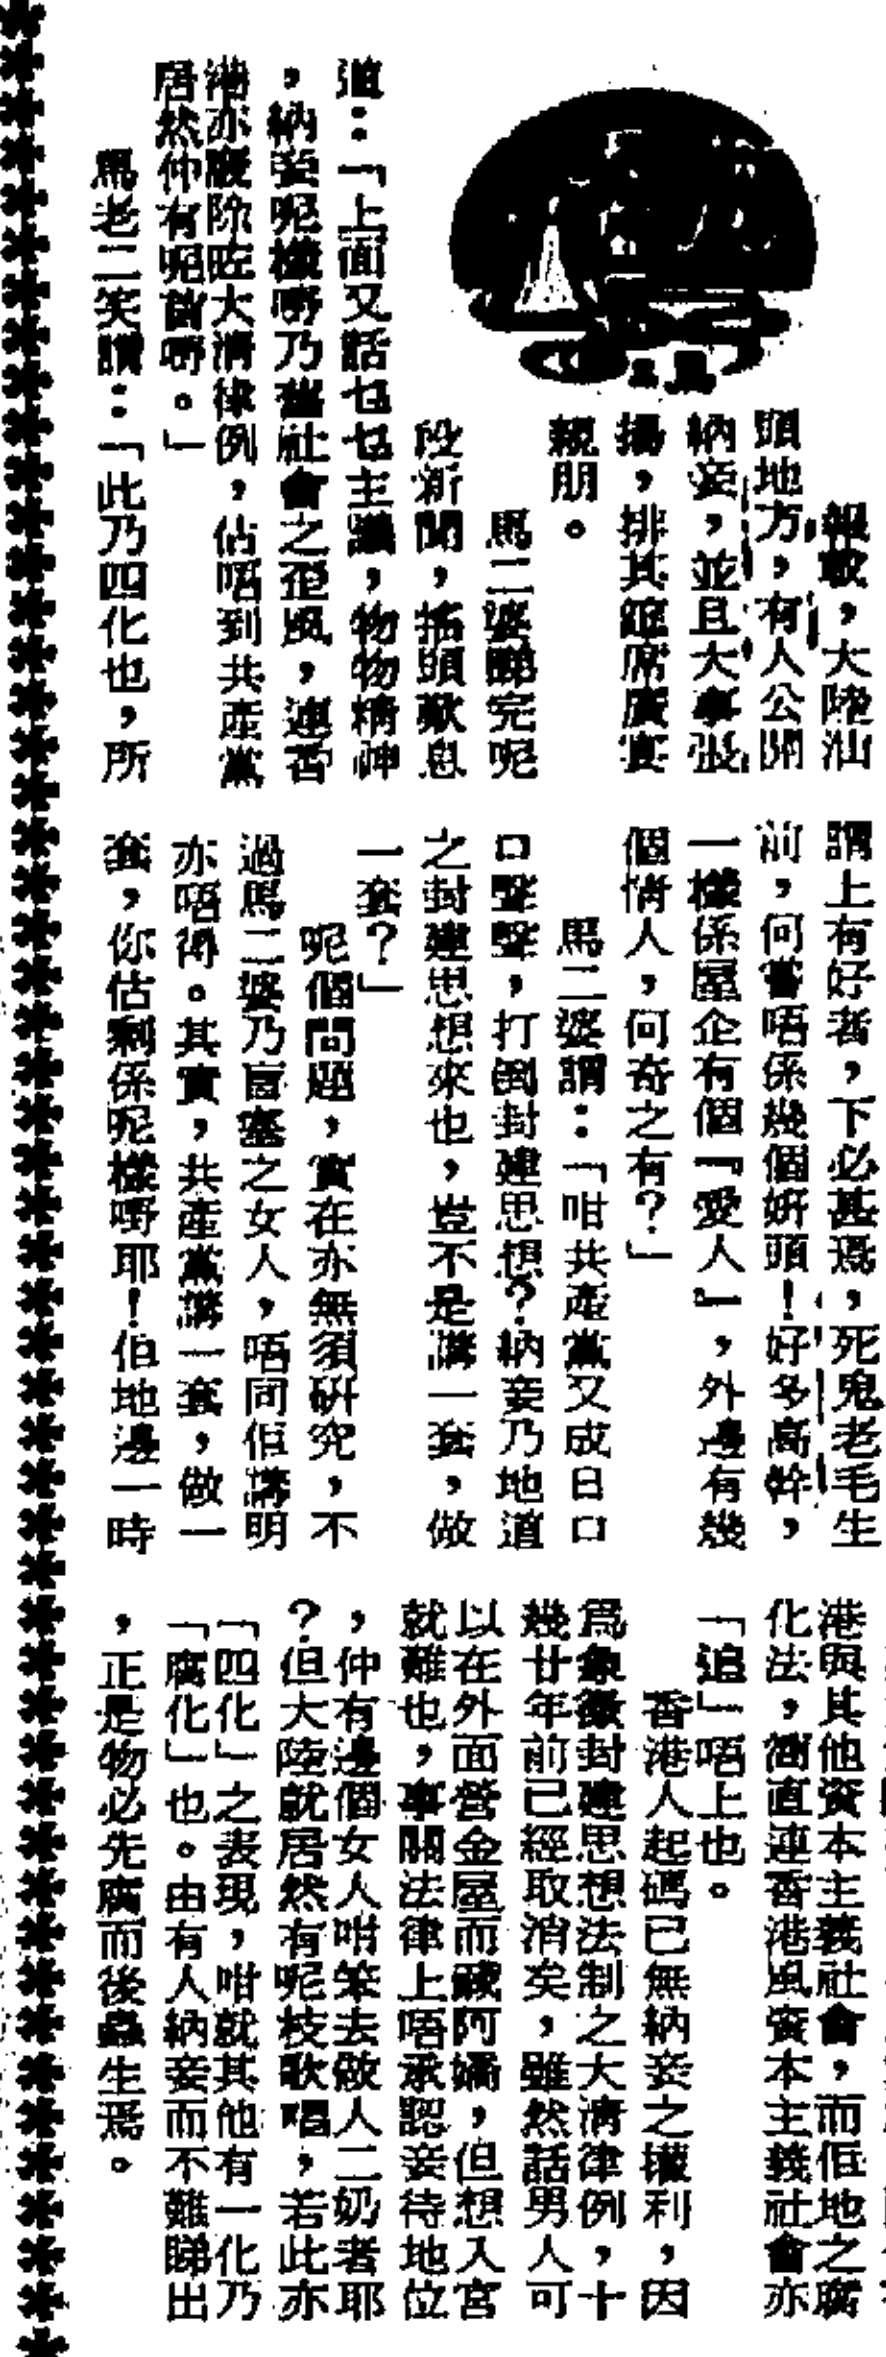 報載，大陸汕
頭地方，有人公開
納妾，並且大事張
揚，排其筵席廣宴
親朋。
馬二婆睇完呢
段新聞，搖頭歎息
道：「上面又話乜乜主義，物物精神
，納妾呢樣嘢乃舊社會之歪風，連香
港亦廢除咗大清律例，估唔到共產黨
居然仲有呢啲嘢。」
馬老二笑謂：「此乃四化也，所
謂上有好者，下必甚焉，死鬼老毛生
前，何嘗唔係幾個姘頭！好多高幹，
一樣係屋企有個『愛人』，外邊有幾
個情人，何奇之有？」
馬二婆謂：「咁共產黨又成日口
口聲聲，打倒封建思想？納妾乃地道
之封建思想來也，豈不是講一套，做
一套？」
呢個問題，實在亦無須研究，不
過馬二婆乃盲塞之女人，唔同佢講明
亦唔得。其實，共產黨講一套，做一
套，你估剩係呢樣嘢耶！佢地邊一時
港與其他資本主義社會，而佢地之腐
化法，簡直連香港風資本主義社會亦
「追」唔上也。
香港人起碼已無納妾之權利，因
為象徵封建思想法制之大清律例，十
幾廿年前已經取消矣，雖然話男人可
以在外面營金屋而藏阿嬌，但想入宮
就難也，事關法律上唔承認妾待地位
，仲有邊個女人咁笨去做人二奶者耶
？但大陸就居然有呢枝歌唱，若此亦
「四化」之表現，咁就其他有一化乃
「腐化」也。由有人納妾而不難睇出
，正是物必先腐而後蟲生焉。